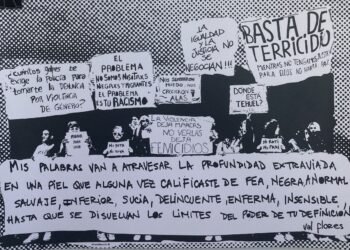 ¿Cuántos golpes se
exige la Policía para
tomarte la denuncia
por violencia
de género?
EL
PROBLEMA
NO SOMOS NOSOTRXS
NEGRAS Y MIGRANTES
EL PROBLEMA
ES TU RACISMO
NOS SEMBRARON
MIEDO, NOS
CRECIERON
ALAS
¡LA
IGUALDAD
Y LA
JUSTICIA NO
SE
NEGOCIAN!!!
BASTA DE
TERRICIDIO
MIENTRAS NO TENGAMOS
PARA ELLOS NO HABRÁ PAZ
DONDE
ESTÁ
TEHUEL?
LA VIOLENCIA
DEJA MARCAS
NO VERLAS
DEJA
FEMICIDIOS
MIS PALABRAS VAN A ATRAVESAR LA PROFUNDIDAD EXTRAVIADA
EN UNA PIEL QUE ALGUNA VEZ CALIFICASTE DE FEA, NEGRA, ANORMAL
SALVAJE, INFERIOR, SUCIA, DELINCUENTE, ENFERMA, INSENSIBLE,
HASTA QUE SE DISUELVAN LOS LÍMITES DEL PODER DE TU DEFINICIÓN
val flores